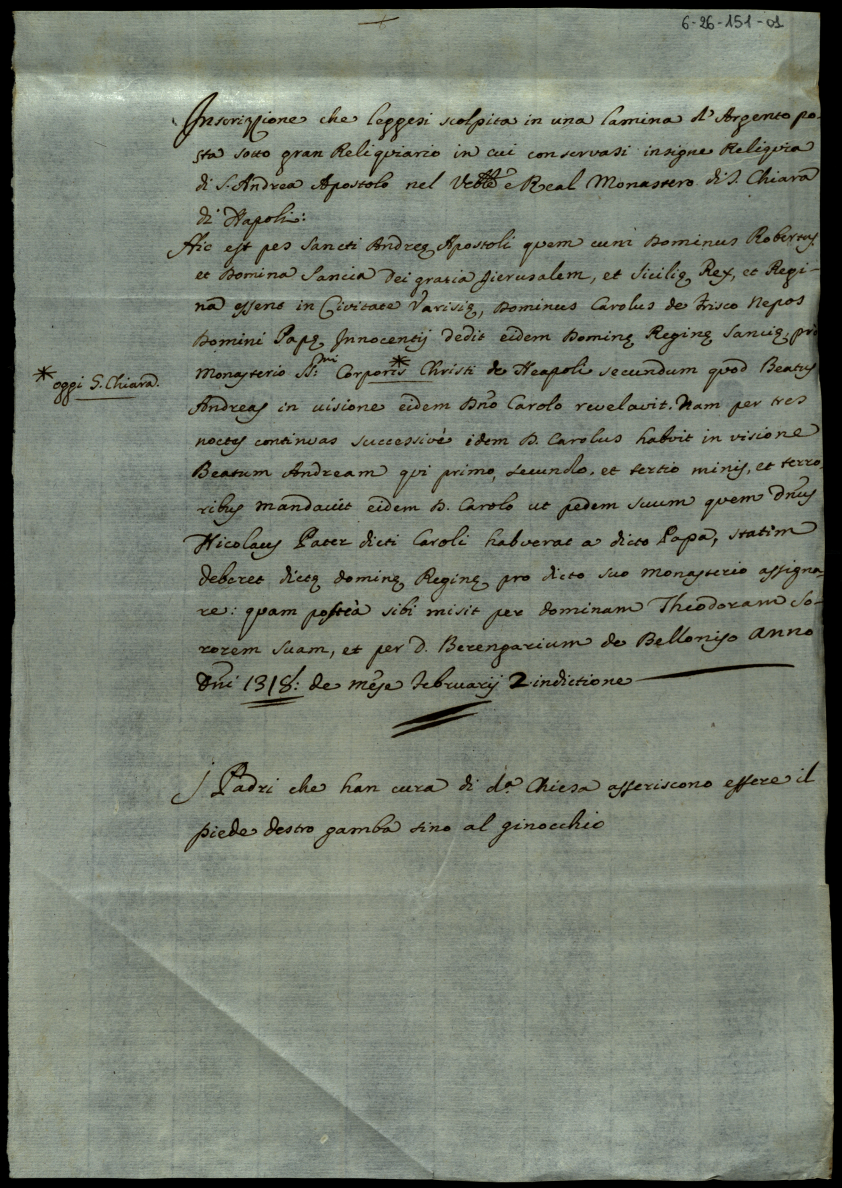 6-26-151-01
Inscrizzione che leggesi scolpita in una lamina d'Argento po-
sta sotto gran Reliquiario in cui conservasi insigne Reliquia
di S. Andrea Apostolo nel e Real Monastero di S. Chiara
di Napoli:
Hic est pes Sancti Andreę Apostoli quem cum Dominus Robertus
et Domina Sancia Dei gratia Jierusalem, et Sicilię Rex, et Regi-
na essent in Civitate Varisię, Dominus Carolus de Frisco Nepos
Domini Papę Innocentij dedit eidem Dominę Reginę Sancię, pro
Monasterio SS.mi Corporis* Christi de Neapoli secundum quod Beatus
* oggi S. Chiara.
Andreas in visione eidem Dño Carolo revelavit. Nam per tres
noctes continuas successivè idem D. Carolus habuit in visione
Beatum Andream qui primo, secundo, et tertio minis, et terro
ribus mandavit eidem D. Carolo ut pedem suum quem Dñus
Nicolaus Pater dicti Caroli habuerat a dicto Papa, statim
deberet dictę dominę Reginę pro dicto suo Monasterio assigna-
re: quam posteà sibi misit per dominam Theodoram So-
rorem suam, et per D. Berengarium de Belloniso Anno
Dñi 1318: de mẽse Februarij 2 indictione
I Padri che han cura di da. Chiesa asseriscono essere il
piede destro gamba sino al ginocchio